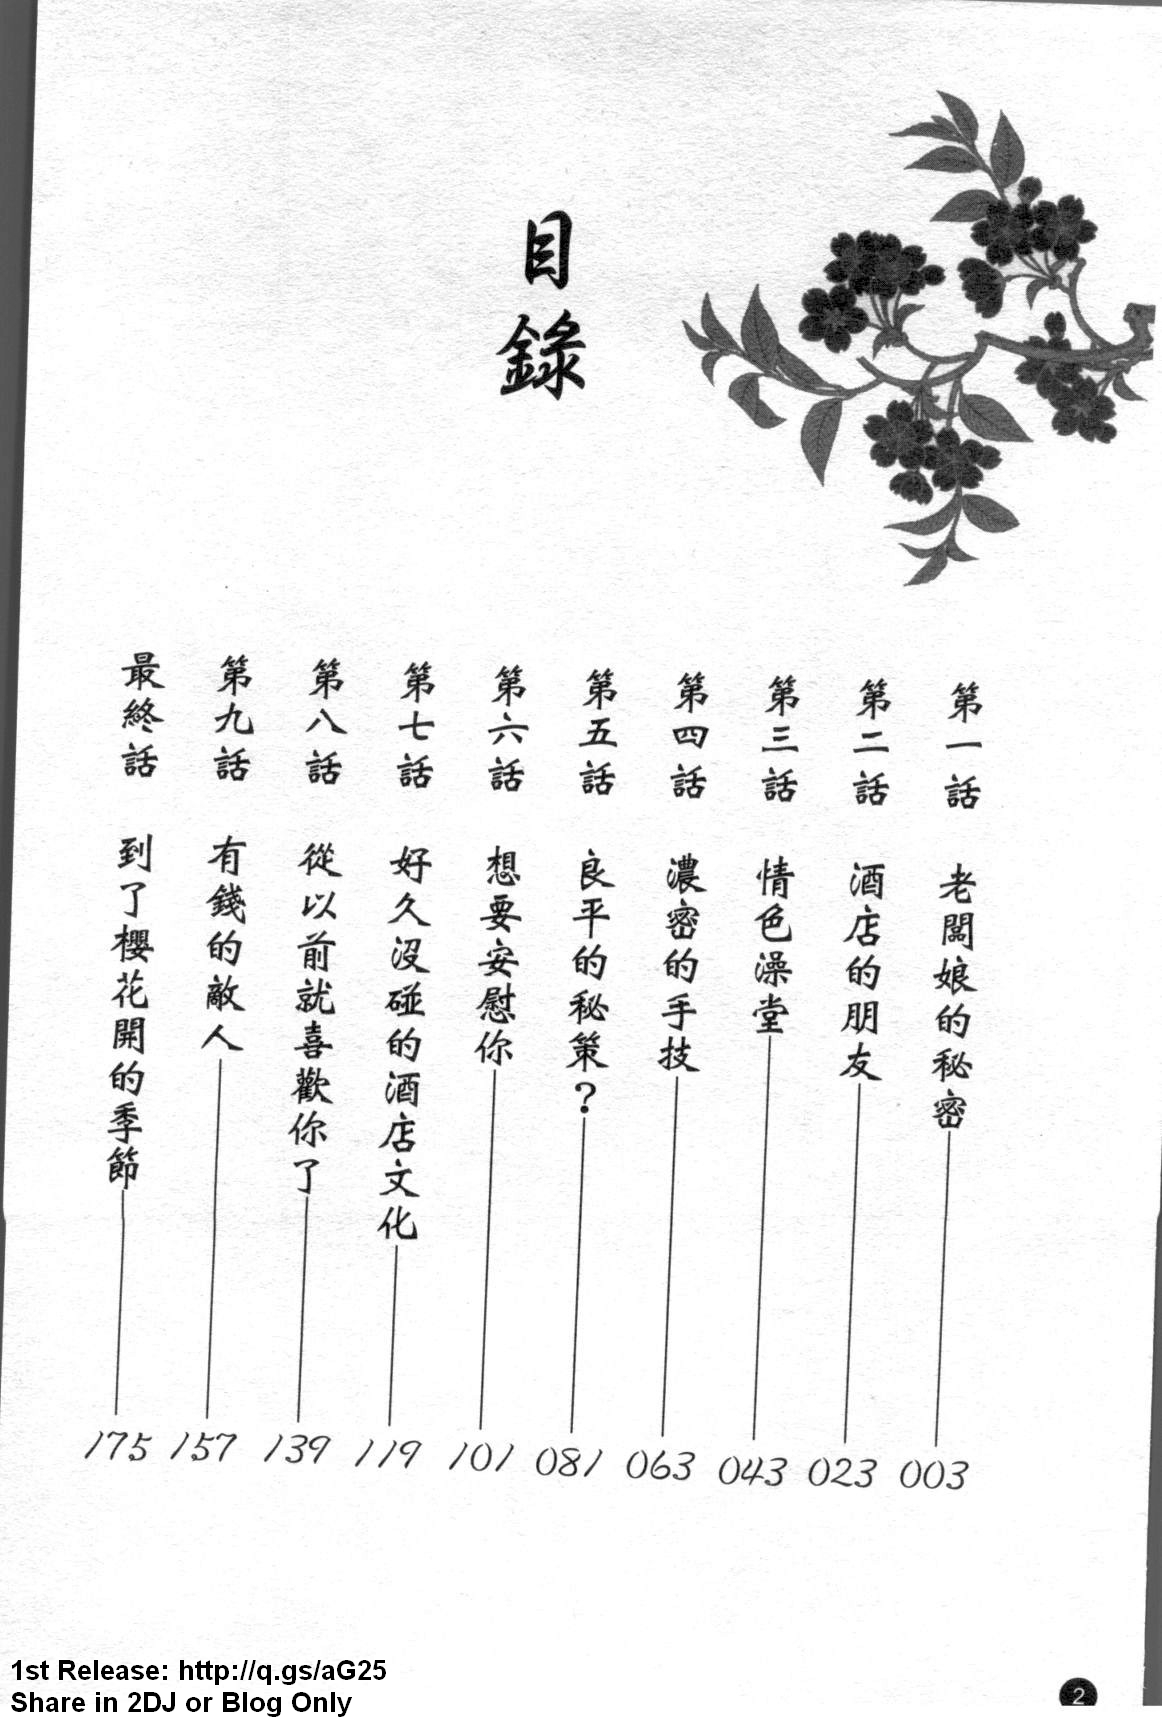 目錄
第一話 老闆娘的秘密 003
第二話 酒店的朋友 023
第三話 情色澡堂 043
第四話 濃密的手技 063
第五話 良平的秘策？ 081
第六話 想要安慰你 101
第七話 好久沒碰的酒店文化 119
第八話 從以前就喜歡你了 139
第九話 有錢的敵人 157
最終話 到了櫻花開的季節 175
1st Release: http://q.gs/aG25
Share in 2DJ or Blog Only
2